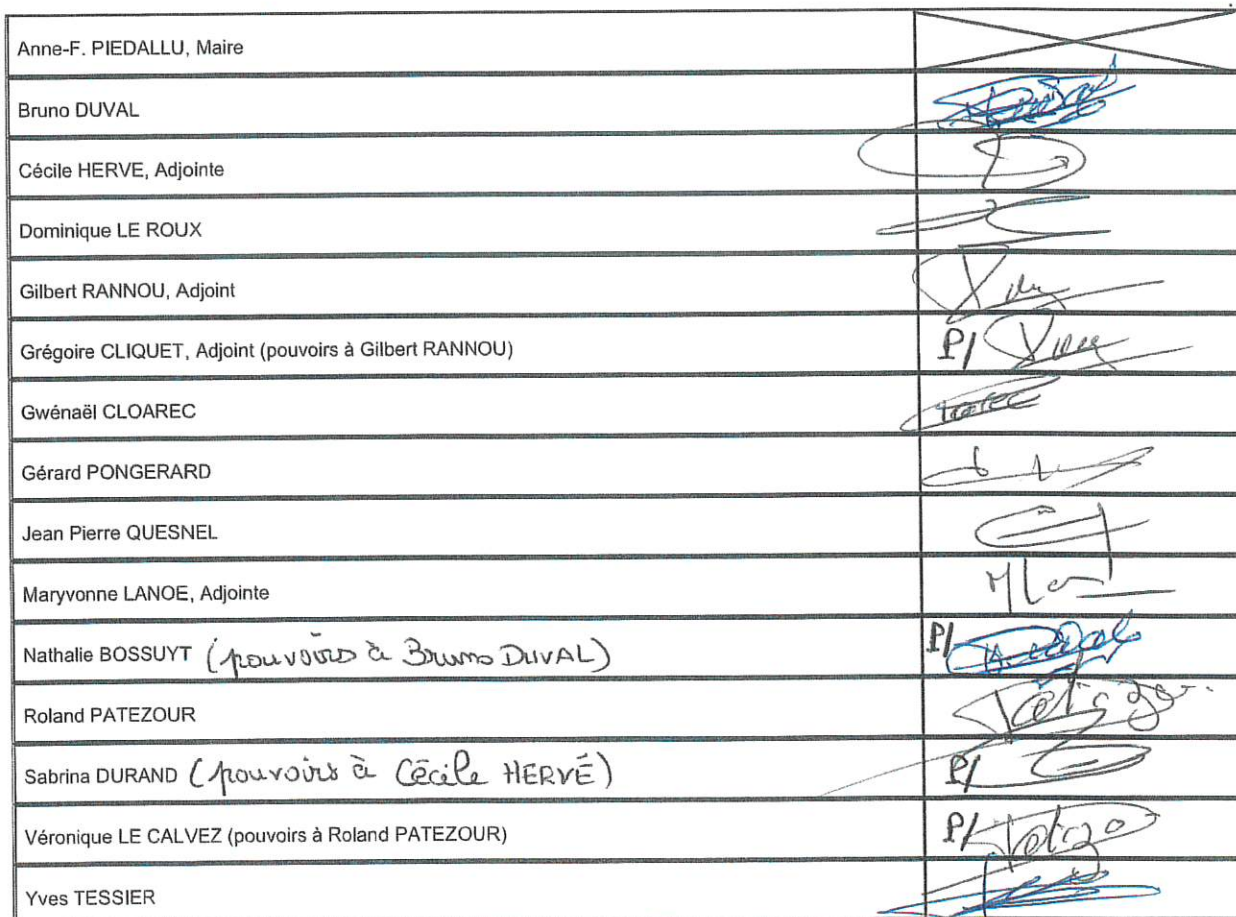 Anne-F. PIEDALLU, Maire
Bruno DUVAL
Cécile HERVE, Adjointe
Dominique LE ROUX
Gilbert RANNOU, Adjoint
Grégoire CLIQUET, Adjoint (pouvoirs à Gilbert RANNOU) P/
Gwénaël CLOAREC
Gérard PONGERARD
Jean Pierre QUESNEL
Maryvonne LANOE, Adjointe
Nathalie BOSSUYT (pouvoirs à Bruno DUVAL) P/
Roland PATEZOUR
Sabrina DURAND (pouvoirs à Cécile HERVÉ) P/
Véronique LE CALVEZ (pouvoirs à Roland PATEZOUR) P/
Yves TESSIER